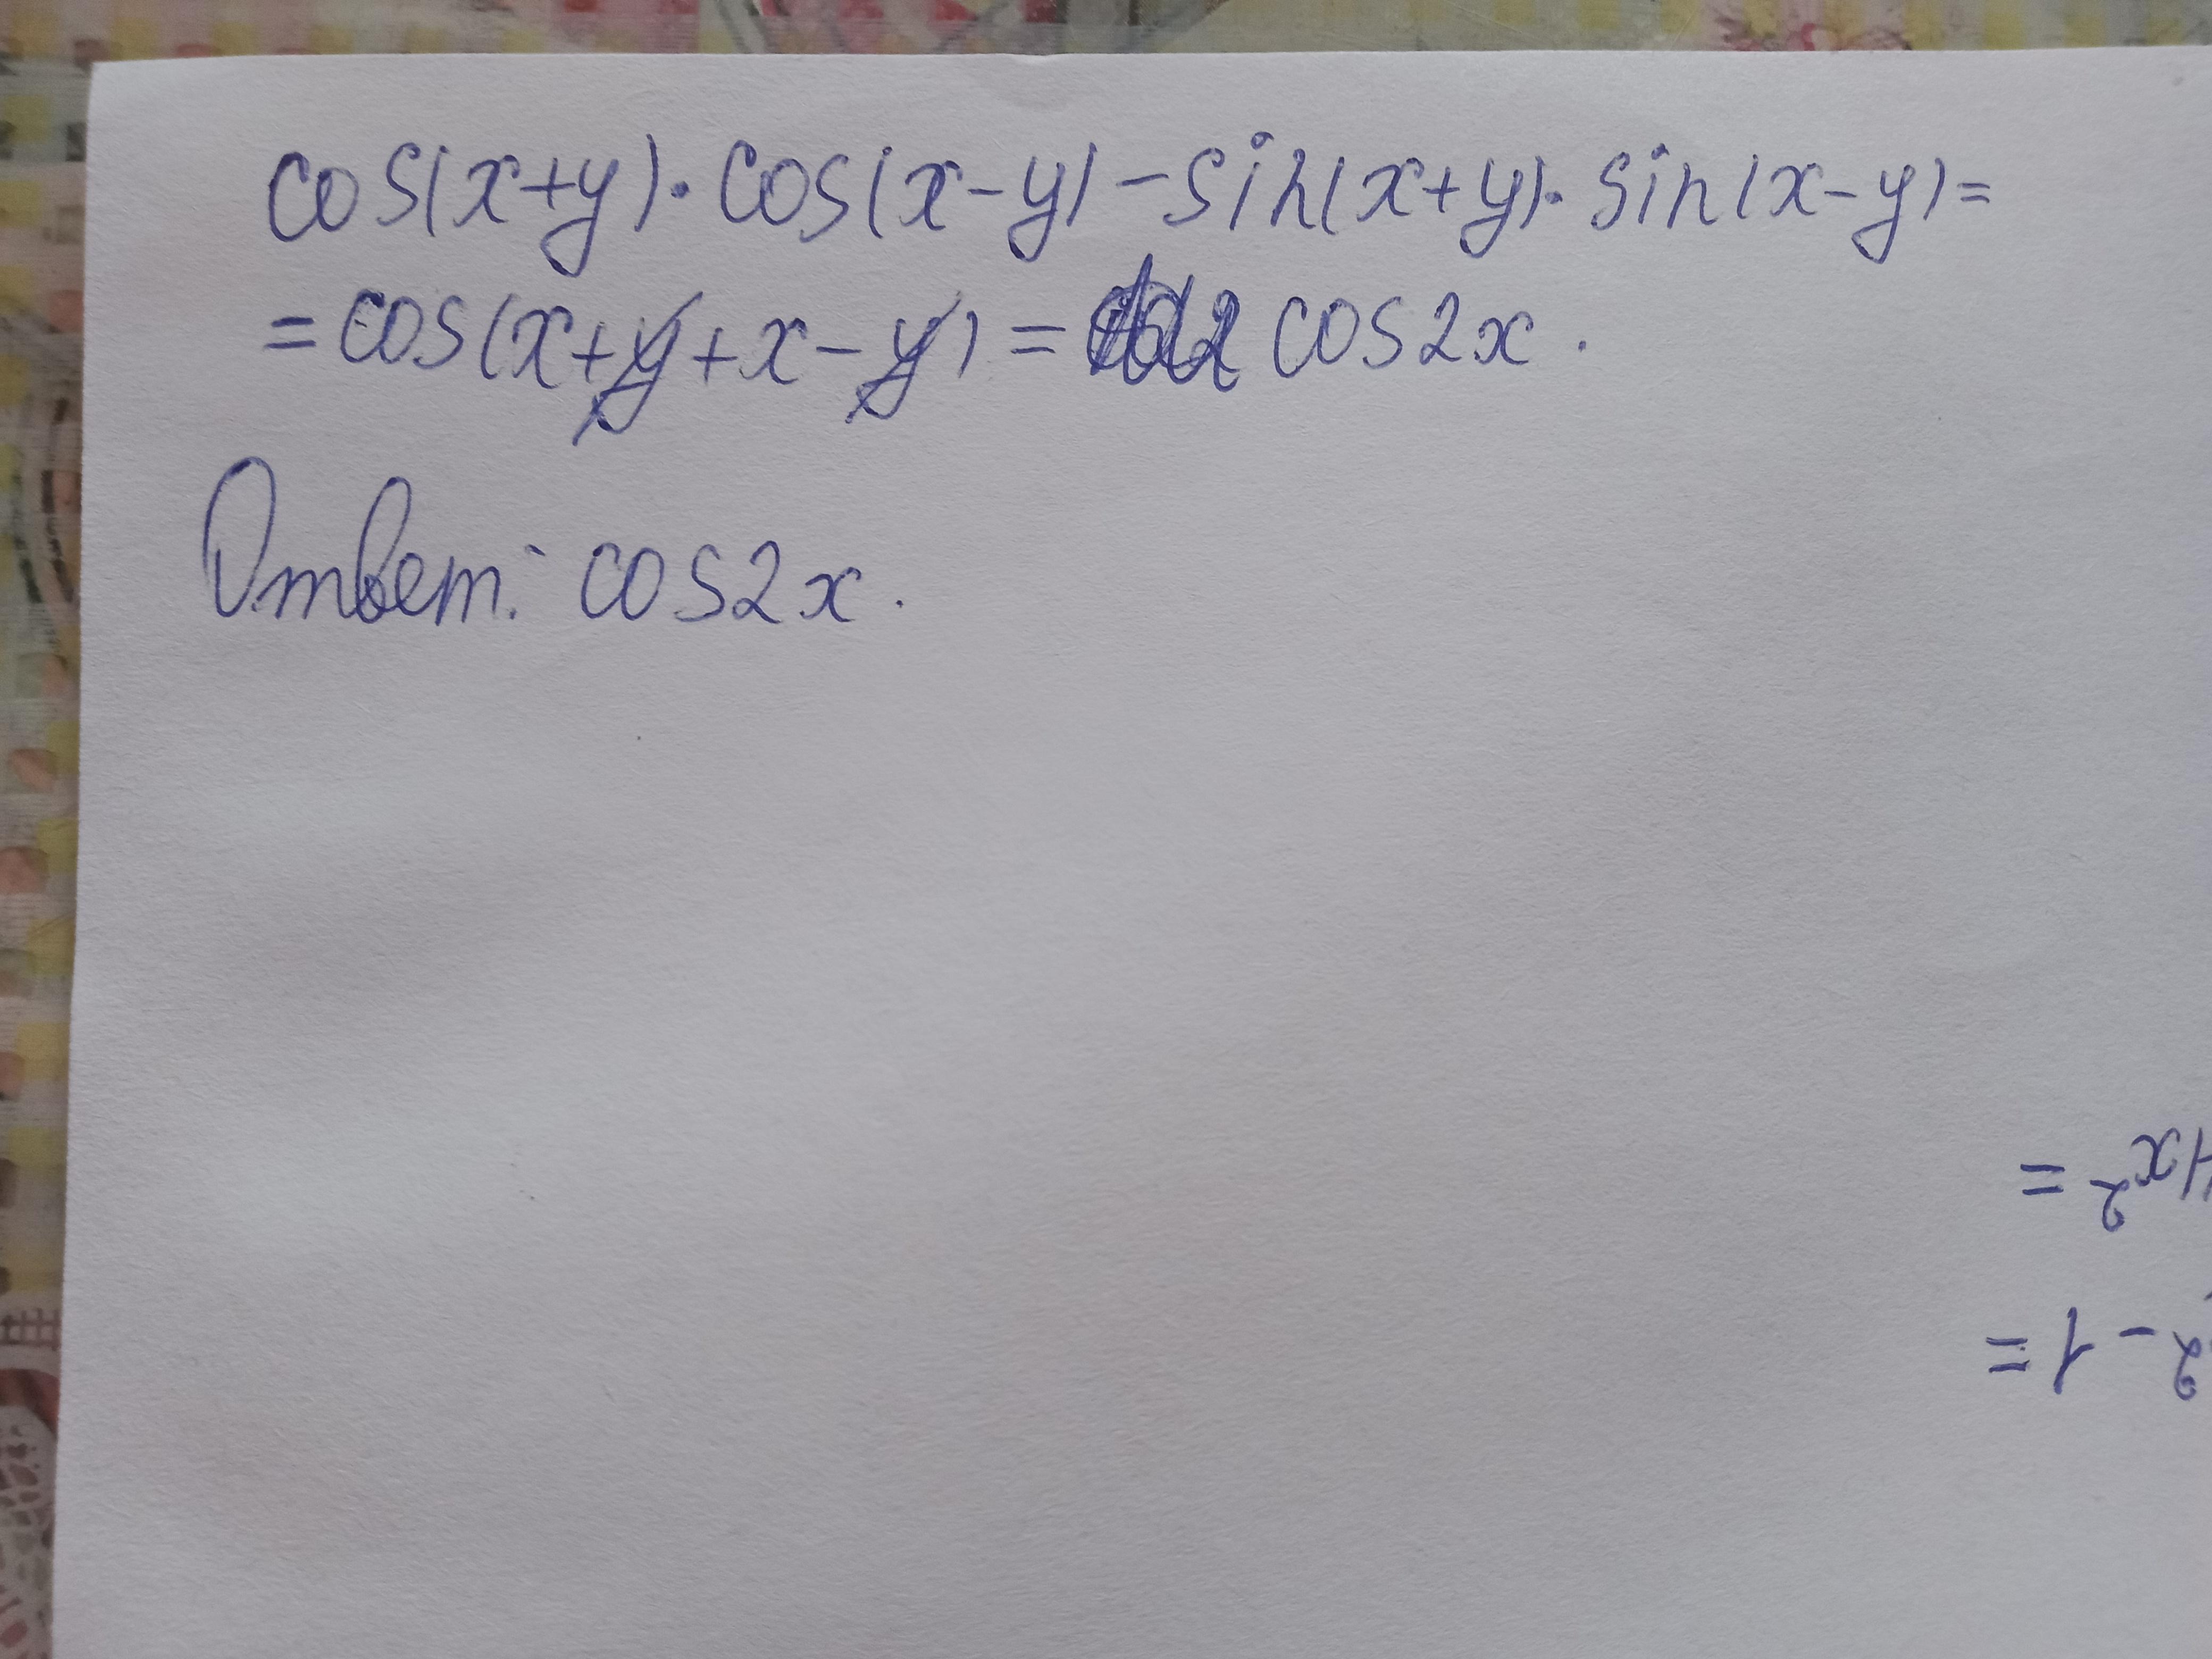 cos(x+y)·cos(x-y)-sin(x+y)·sin(x-y)=
=cos(x+y+x-y)= cos2x.
Ответ: cos2x.
4x²=
2-1=